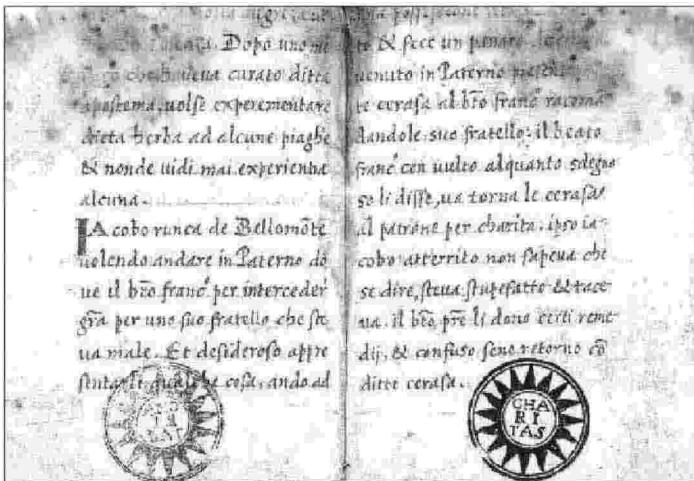 Dopo uno me
curato ditta
apostema, uolse experementare
dicta herba ad alcune piaghe
& nonde uidi mai experientia
alcuna.
IAcobo runca de Bellomōte
uolendo andare in Paterno dō
ue il bt̄o franc.º per interceder
gr̄a per uno suo fratello che ste
ua male. Et desideroso appre
sentarli qualche cosa, ando ad
& fece un penaro
uenuto in Paterno
te cerasa al bt̄o franc.º racomā
dandole suo fratello: il beato
franc.º con uulto alquanto sdegno
so li disse, ua torna le cerasa
al patrone per charita. ipso ia
cobo atterrito non sapeua che
se dire, steua stupefatto & tace
ua. il bt̄o pr̄e li dono certi reme
dij, & confuso seno retorno cō
ditte cerasa.
CHA
RI
TAS